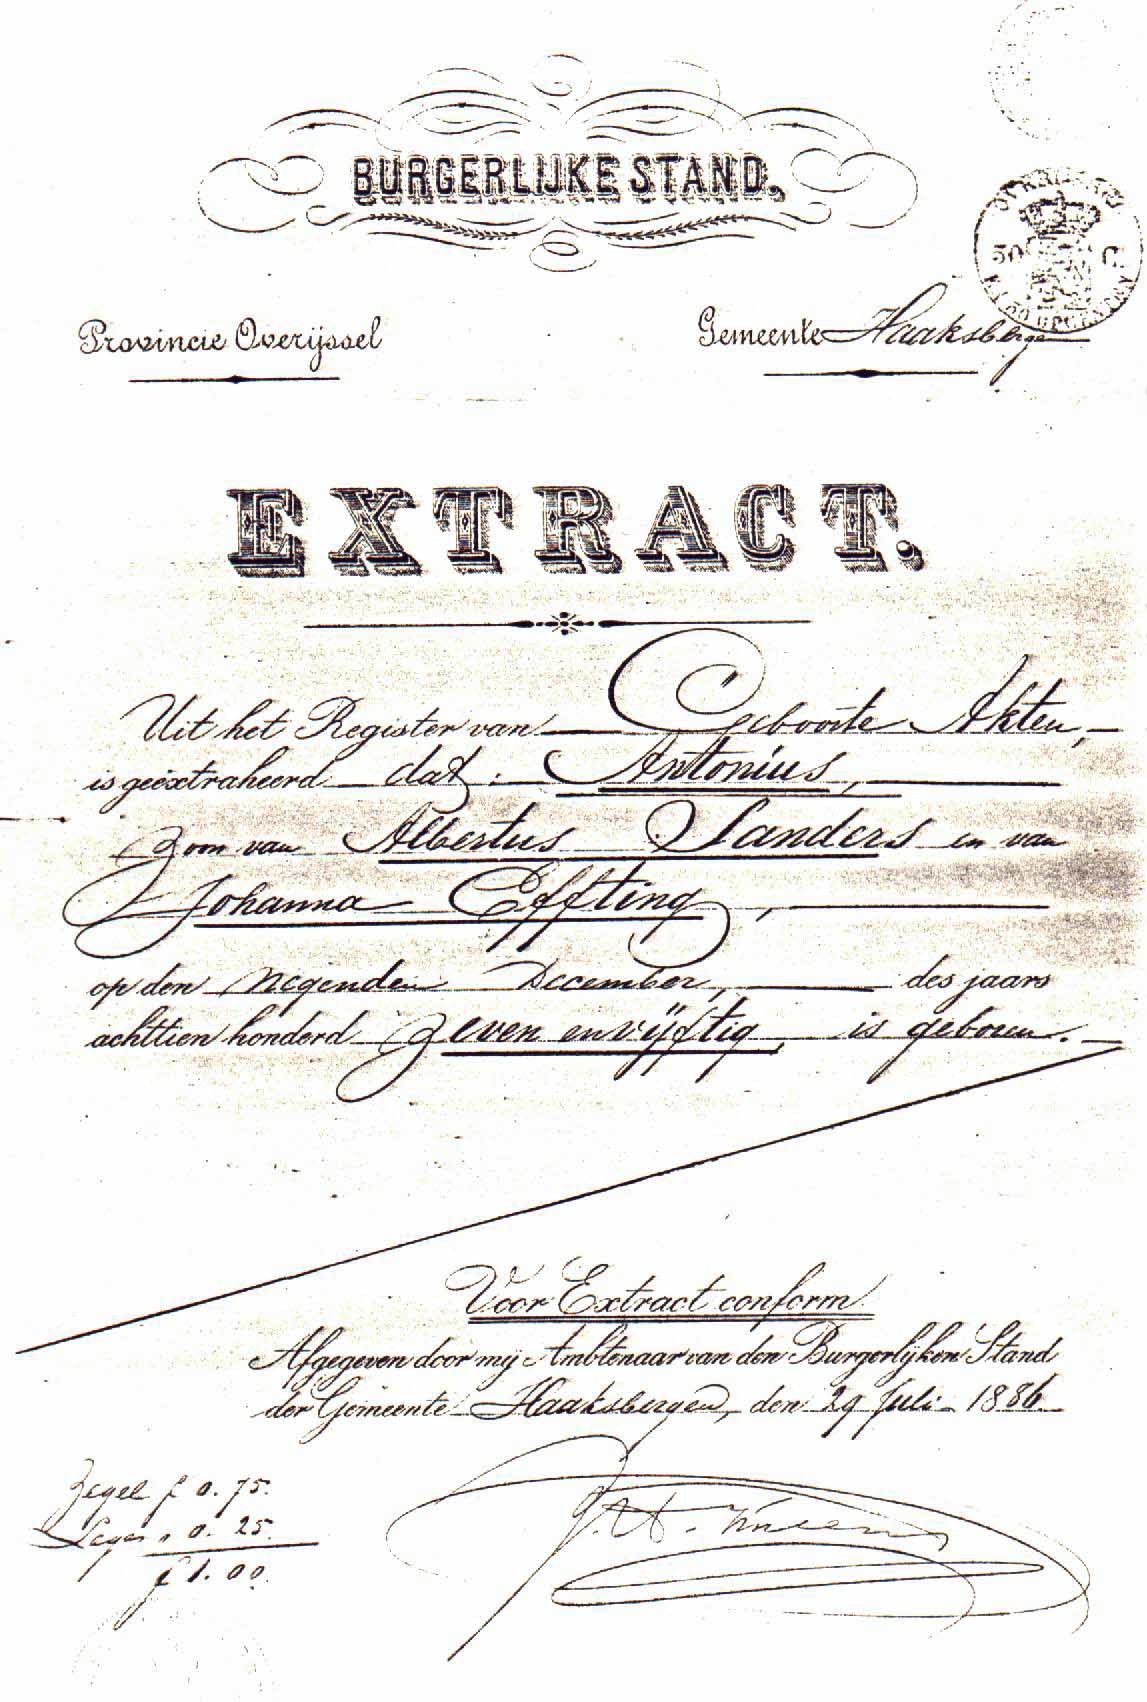 BURGERLIJKE STAND.
50 C
Provincie Overijssel
Gemeente Haaksbergen
EXTRACT.
Uit het Register van Geboorte Akten,
is geëxtraheerd dat: Antonius,
Zoon van Albertus Sanders en van
Johanna Effting,
op den negenden December, des jaars
achttien honderd Zeven en vijftig, is geboren.
Voor Extract conform
Afgegeven door mij Ambtenaar van den Burgerlijken Stand
der Gemeente Haaksbergen, den 29 Juli 1886
Zegel f 0.75.
Leges " 0.25.
f 1.00.
J. W.